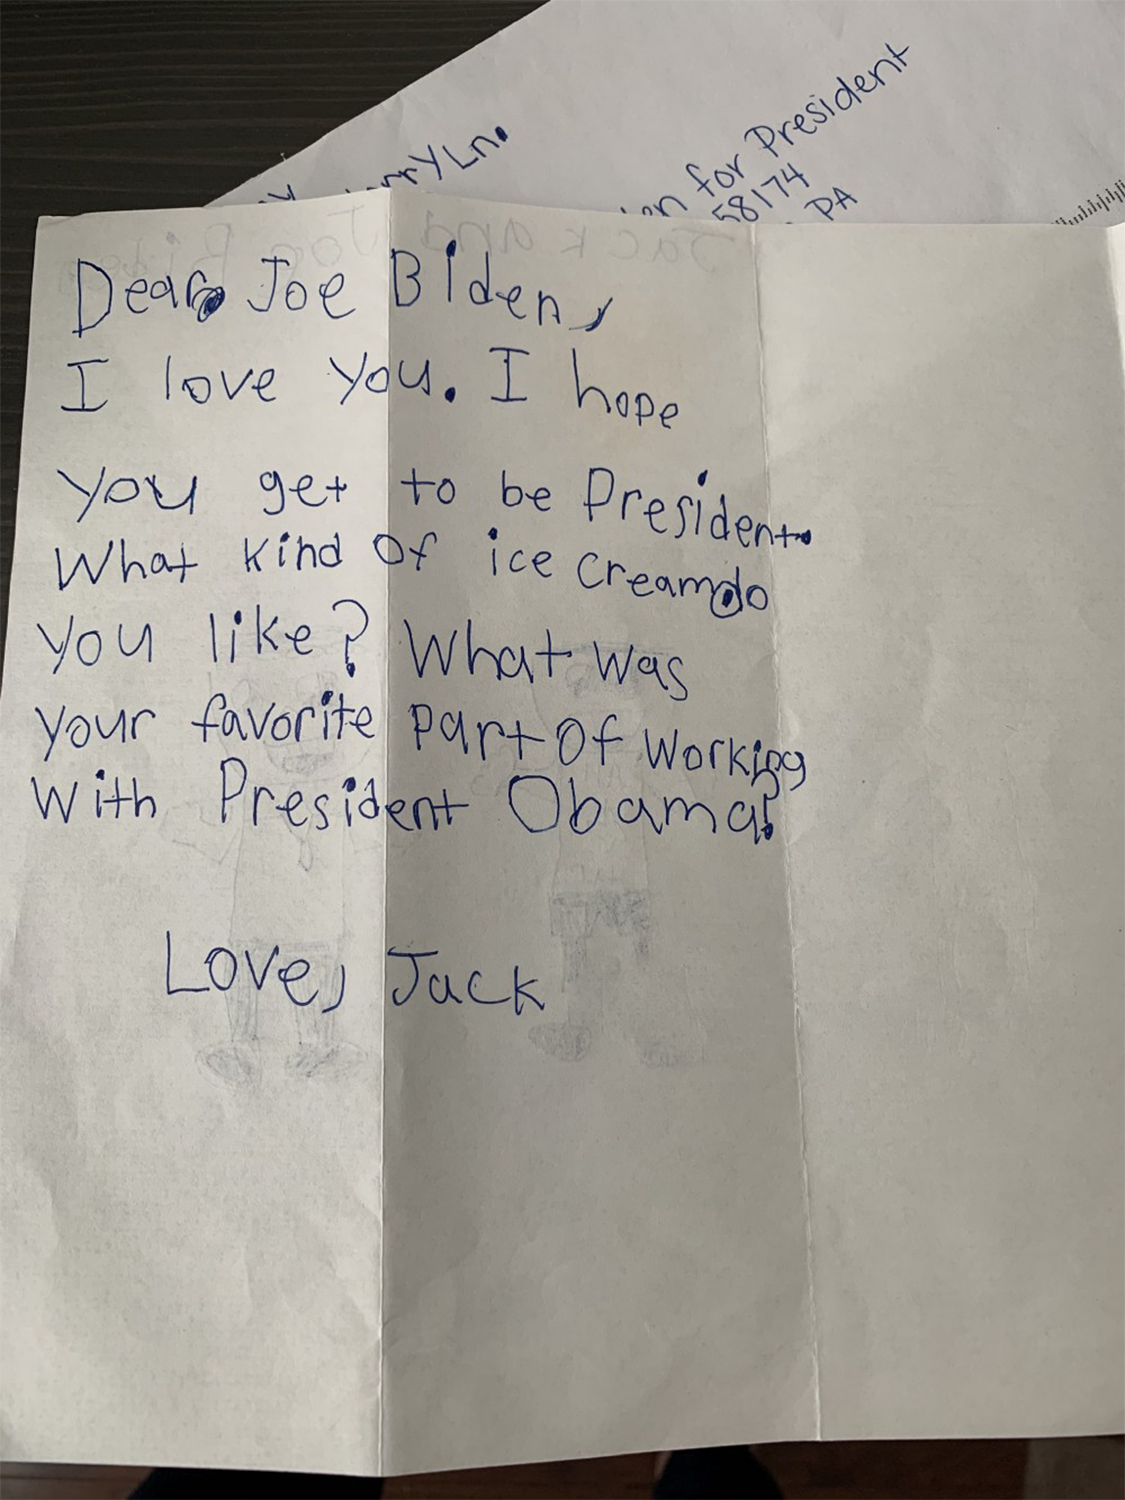 Ln.
for President
58174
PA
Jack and Joe Biden
Dear Joe Biden,
I love you. I hope
you get to be President.
What kind of ice cream do
you like? What was
your favorite part of working
with President Obama?
Love, Jack